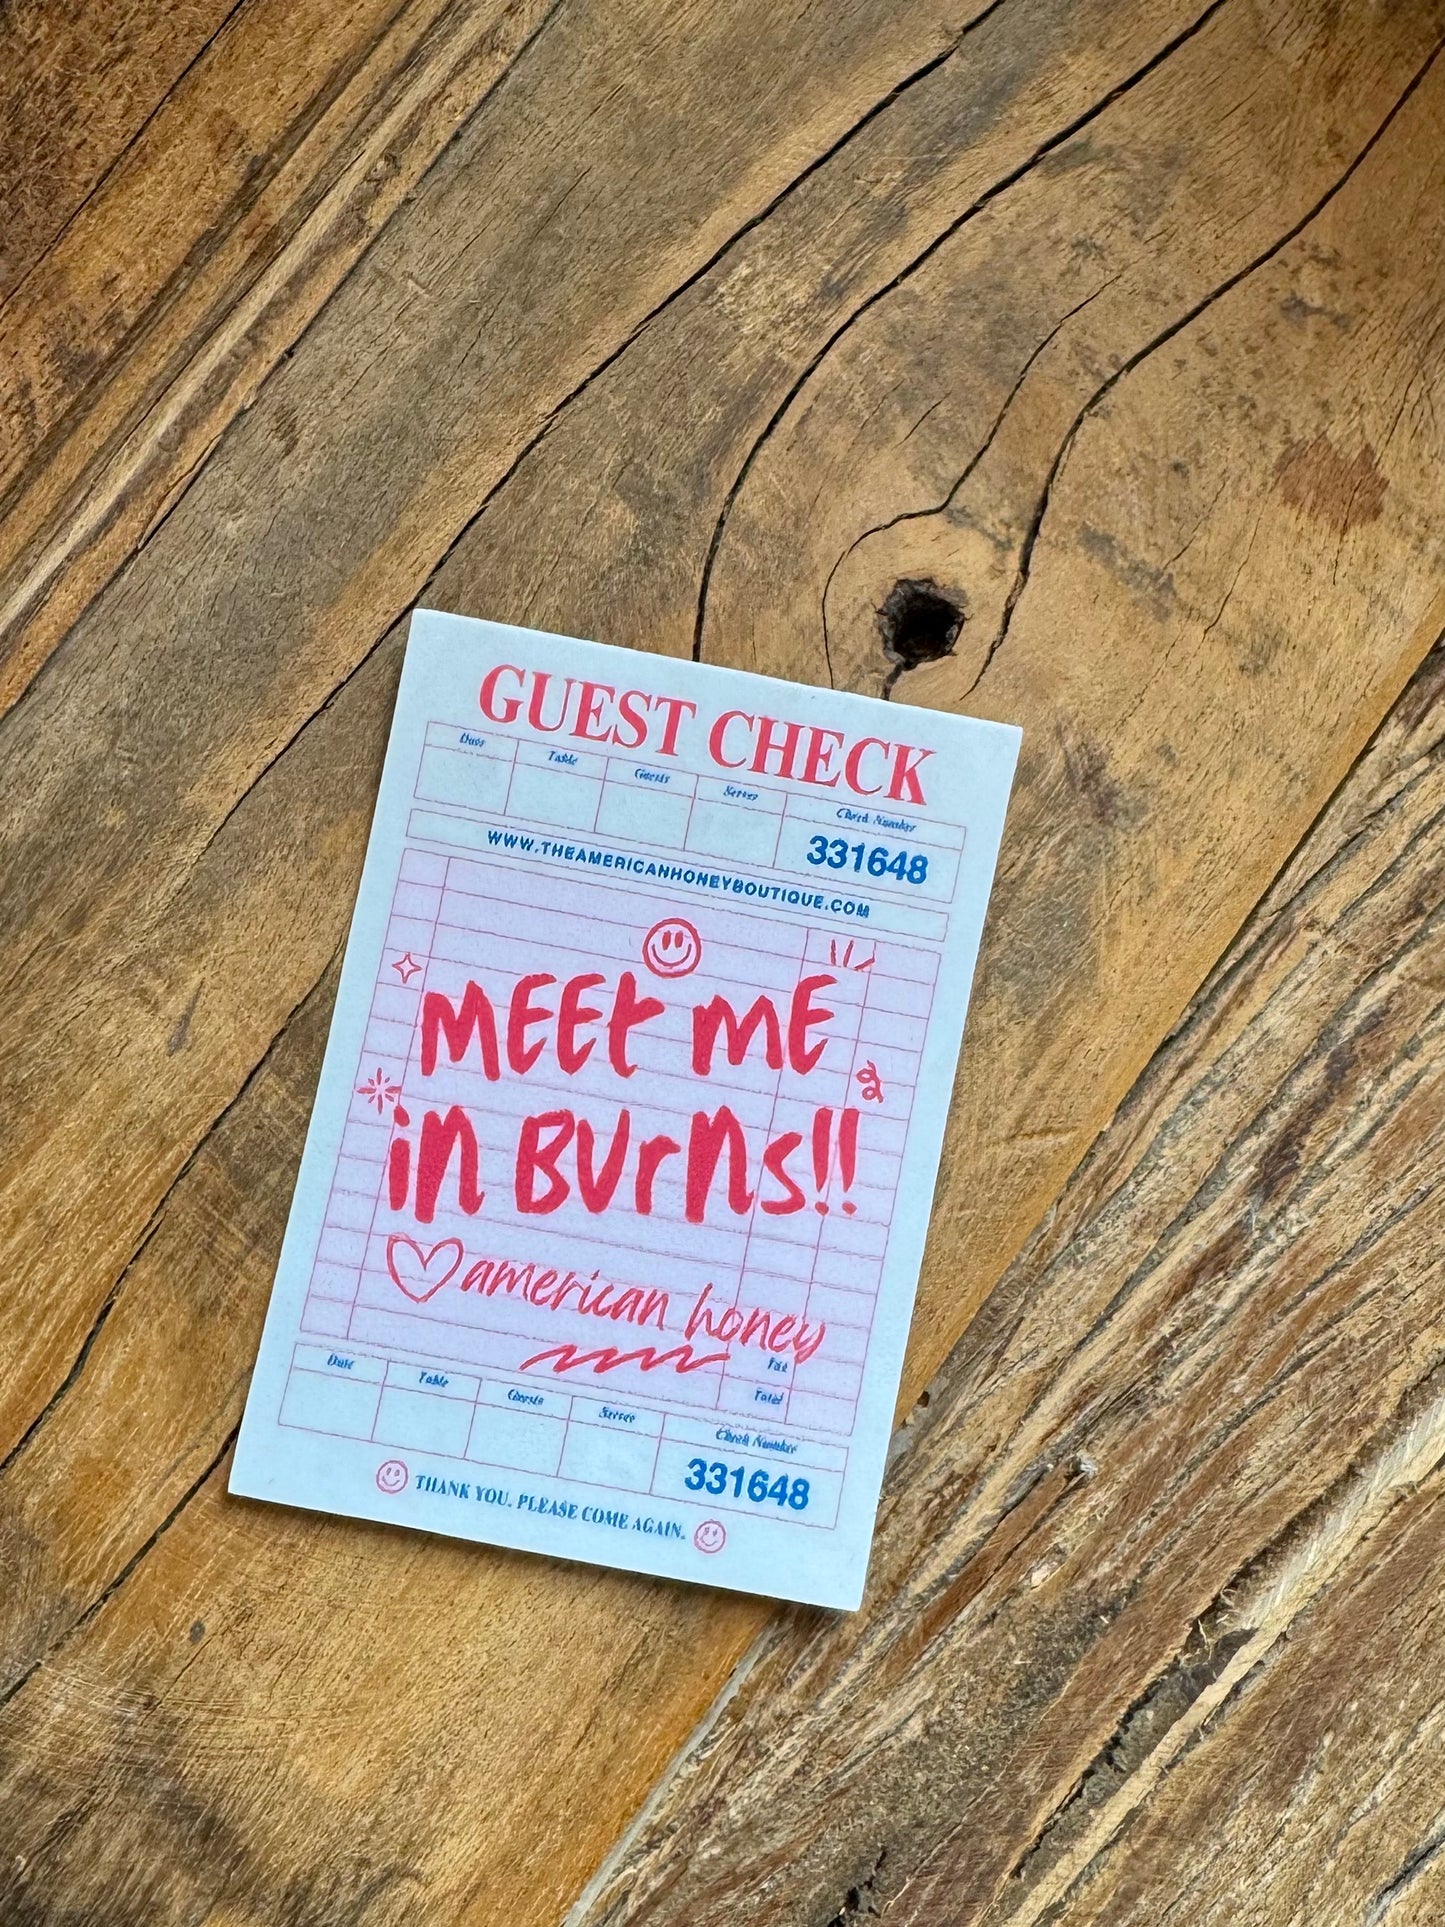 GUEST CHECK
Date Table Guests Server Check Number
331648
WWW.THEAMERICANHONEYBOUTIQUE.COM
MEEt ME
in BUrns!!
american honey
Tax
Total
Date Table Guests Server Check Number
331648
THANK YOU. PLEASE COME AGAIN.